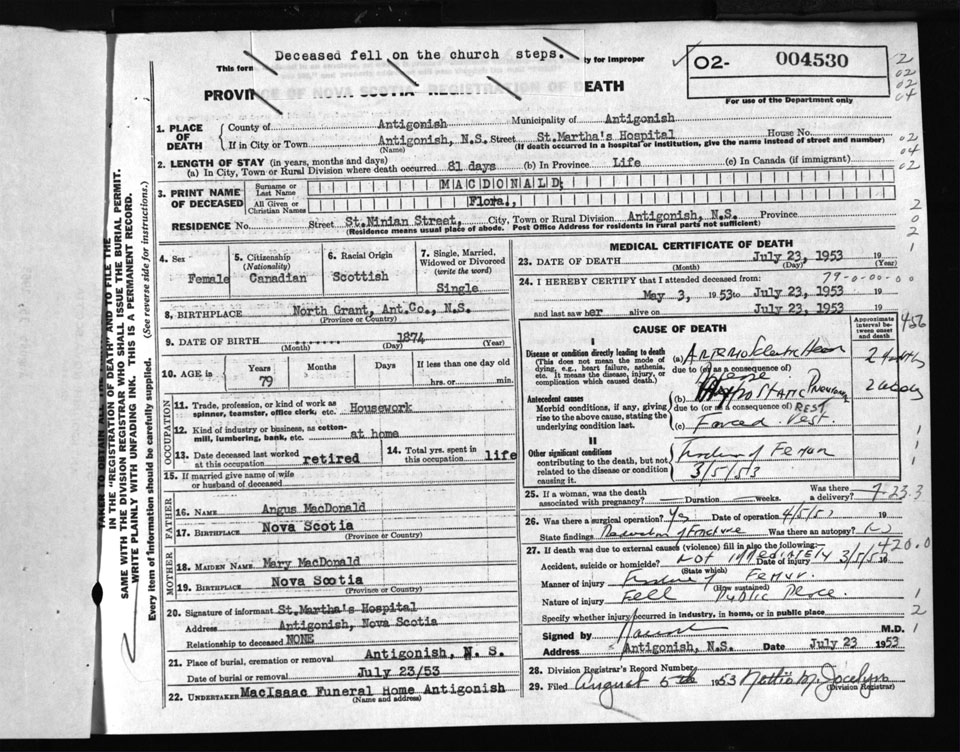 Deceased fell on the church steps.
This form
ty for Improper
PROVIN CE OF NOVA SCOTIA REGISTRATION OF DEATH
O2- 004530
For use of the Department only
1. PLACE OF DEATH
County of Antigonish Municipality of Antigonish
If in City or Town Antigonish, N.S. Street St.Martha's Hospital House No.
(Name) (If death occurred in a hospital or institution, give the name instead of street and number)
2. LENGTH OF STAY (in years, months and days)
(a) In City, Town or Rural Division where death occurred 81 days (b) In Province Life (c) In Canada (if immigrant)
3. PRINT NAME OF DECEASED
Surname or Last Name MACDONALD,
All Given or Christian Names Flora.,
RESIDENCE No. Street St.Ninian Street, City, Town or Rural Division Antigonish, N.S. Province
(Residence means usual place of abode. Post Office Address for residents in rural parts not sufficient)
4. Sex Female
5. Citizenship (Nationality) Canadian
6. Racial Origin Scottish
7. Single, Married, Widowed or Divorced (write the word) Single
8. BIRTHPLACE North Grant, Ant.Co., N.S.
(Province or Country)
9. DATE OF BIRTH 1874
(Month) (Day) (Year)
10. AGE in Years 79 Months Days If less than one day old hrs. or min.
OCCUPATION
11. Trade, profession, or kind of work as spinner, teamster, office clerk, etc. Housework
12. Kind of industry or business, as cotton-mill, lumbering, bank, etc. at home
13. Date deceased last worked at this occupation retired
14. Total yrs. spent in this occupation life
15. If married give name of wife or husband of deceased
FATHER
16. NAME Angus MacDonald
17. BIRTHPLACE Nova Scotia
(Province or Country)
MOTHER
18. MAIDEN NAME Mary MacDonald
19. BIRTHPLACE Nova Scotia
(Province or Country)
20. Signature of informant St.Martha's Hospital
Address Antigonish, Nova Scotia
Relationship to deceased NONE
21. Place of burial, cremation or removal Antigonish, N. S.
Date of burial or removal July 23/53
22. UNDERTAKER MacIsaac Funeral Home Antigonish
(Name and address)
MEDICAL CERTIFICATE OF DEATH
23. DATE OF DEATH July 23, 1953 19
(Month) (Day) (Year)
24. I HEREBY CERTIFY that I attended deceased from: 79-0-00-00
May 3, 1953 to July 23, 1953 19
and last saw her alive on July 23, 1953 19
CAUSE OF DEATH
Approximate interval between onset and death
456
I
Disease or condition directly leading to death
(This does not mean the mode of dying, e.g., heart failure, asthenia, etc. It means the disease, injury, or complication which caused death.)
(a) Arteriosclerotic Heart
due to (or as a consequence of)
Antecedent causes
Morbid conditions, if any, giving rise to the above cause, stating the underlying condition last.
(b) Hypostatic Pneumonia 2 weeks
due to (or as a consequence of) REST
(c) Forced Rest.
II
Other significant conditions
contributing to the death, but not related to the disease or condition causing it.
Fracture of Femur
3/5/53
25. If a woman, was the death associated with pregnancy? Duration weeks. Was there a delivery? 7-23.3
26. Was there a surgical operation? Yes Date of operation 4/5/53 19
State findings Reduction of Fracture Was there an autopsy? No
27. If death was due to external causes (violence) fill in also the following: 420.0
Accident, suicide or homicide? Not immediately Date of injury 3/5/53 19
(State which)
Manner of injury Fracture of Femur.
(How sustained)
Nature of injury Fell Public Place.
Specify whether injury occurred in industry, in home, or in public place
Signed by M.D.
Address Antigonish, N.S. Date July 23 1953
28. Division Registrar's Record Number
29. Filed August 5th 1953 Mattie M. Jocelyn
(Division Registrar)
IN THE "REGISTRATION OF DEATH" AND TO FILE THE
SAME WITH THE DIVISION REGISTRAR WHO SHALL ISSUE THE BURIAL PERMIT.
WRITE PLAINLY WITH UNFADING INK. THIS IS A PERMANENT RECORD.
Every item of information should be carefully supplied. (See reverse side for instructions.)
2
02
02
04
02
04
02
2
0
2
1
1
1
1
1
2
1